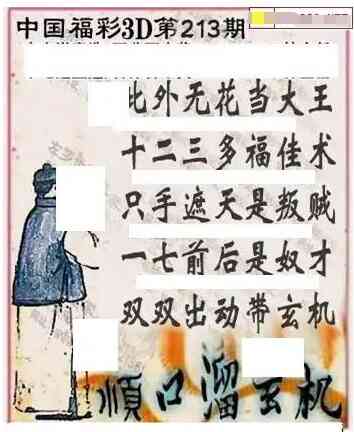 中国福彩3D第213期
此外无花当大王
十二三多福佳术
只手遮天是叛贼
一七前后是奴才
双双出动带玄机
顺口溜玄机